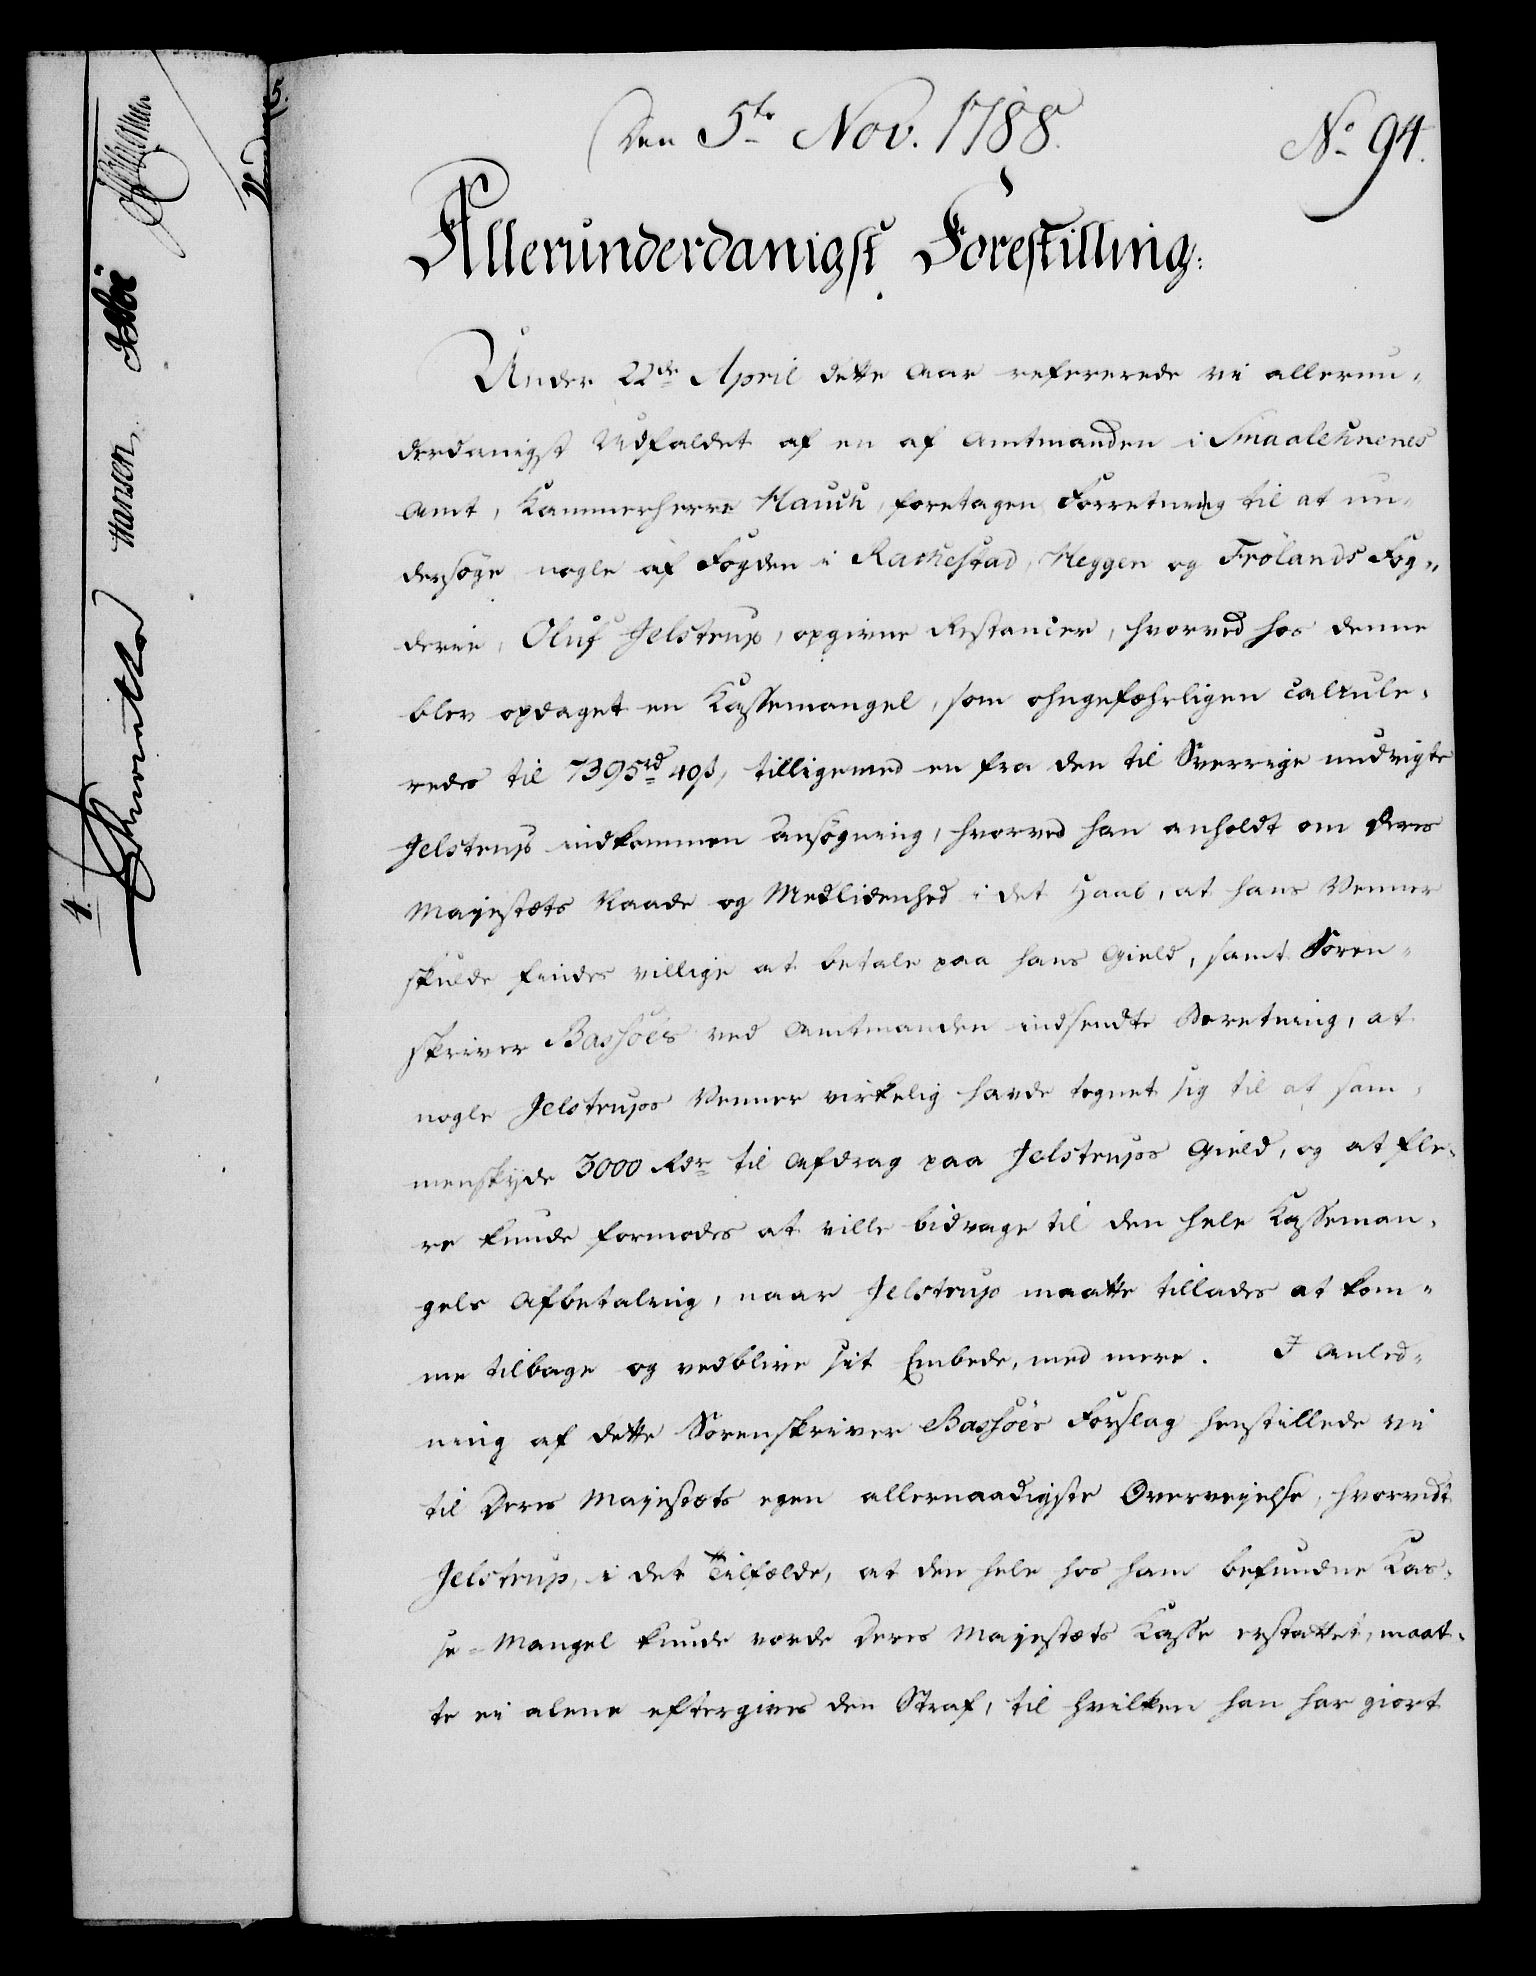 Den 5te Nov. 1788.
No 94.
Allerunderdanigst Forestilling:
Under 22de April dette Aar refererede vi allerun-
derdanigst Udfaldet af en af Amtmanden i Smaalehnenes
Amt, Kammerherre Hauch, foretagen Forretning til at un-
dersøge nogle af Fogden i Rackestad, Heggen og Frölands Fog-
derie, Oluf Jelstrup, opgivne Restancer, hvorved hos denne
blev opdaget en Kassemangel, som ohngefæhrligen calcule-
redes til 7395rd 40s, tilligemed en fra den til Sverrige undvigte
Jelstrup indkommen Ansøgning, hvorved han anholdt om Deres
Majestæts Naade og Medlidenhed i det Haab, at hans Venner
skulde findes villige at betale paa hans Gield, samt Soren-
skriver Bassöes ved Amtmanden indsendte Beretning, at
nogle Jelstrups Venner virkelig havde tegnet sig til at sam-
menskyde 3000 Rdr til Afdrag paa Jelstrups Gield, og at fle-
re kunde formodes at ville bidrage til den hele Kasseman-
gels Afbetaling, naar Jelstrup maatte tillades at kom-
me tilbage og vedblive sit Embede, med mere. I Anled-
ning af dette Sorenskriver Bassöes Forslag henstillede vi
til Deres Majestæts egen allernaadigste Overveielse, hvorvidt
Jelstrup, i det Tilfælde, at den hele hos ham befundne Kas-
se-Mangel kunde vorde Deres Majestæts Kasse erstattet, maat-
te ei alene eftergives den Straf, til hvilken han har giort
Hansen
4.